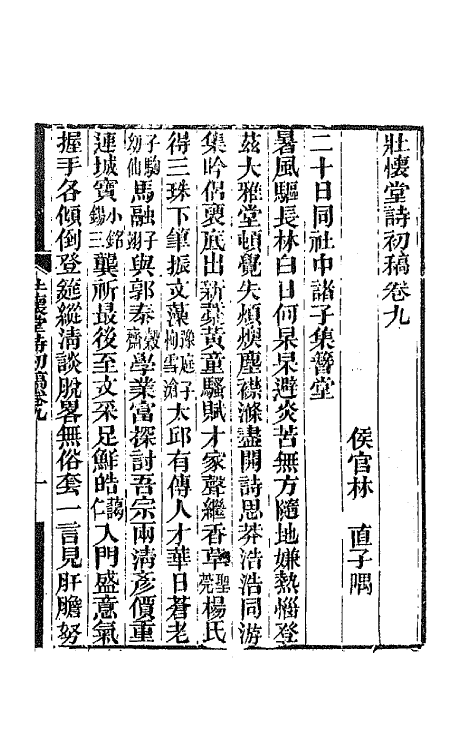 壯懷堂詩初稿卷九
侯官林　直子隅
二十日同社中諸子集簪堂
暑風驅長林白日何杲杲避炎苦無方隨地嫌熱惱登
茲大雅堂頓覺失煩燠塵襟滌盡開詩思莽浩浩同游
集吟侶褎底出新藁黃童騷賦才家聲繼香草聖凳楊氏
得三珠下筆振文藻豫庭子恂雪滄太邱有傳人才華日蒼老
子駒幼仙馬融子翊與郭泰穀齋學業富探討吾宗兩清彥價重
連城寶小銘錫三龔祈最後至文采足鮮皓藹仁入門盛意氣
握手各傾倒登筵縱清談脫畧無俗套一言見肝膽努
壯懷堂詩初稿卷九　一